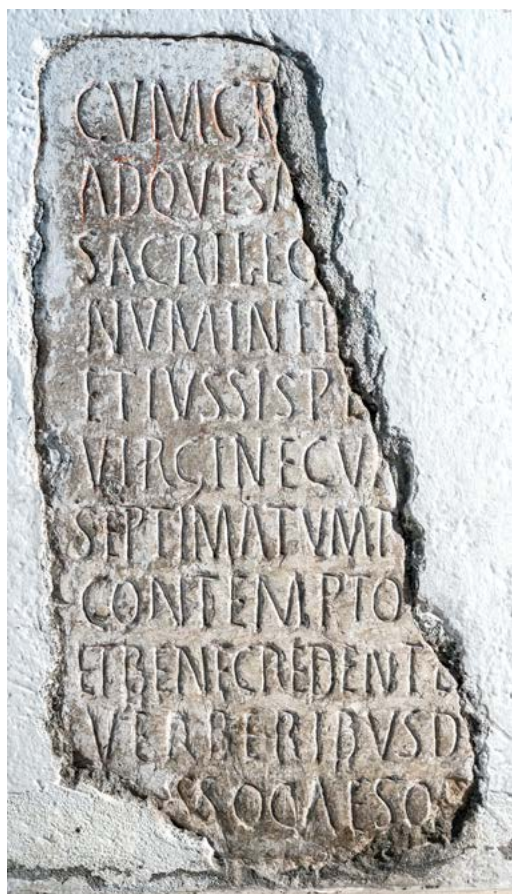 CVMGR
ADQVESA
SACRILEG
NVMINE
ETIVSSISP
VIRGINECVA
SEPTIMATVM
CONTEMPTO
ETBENECREDENTE
VERBERIBVSD
SSOCAESO